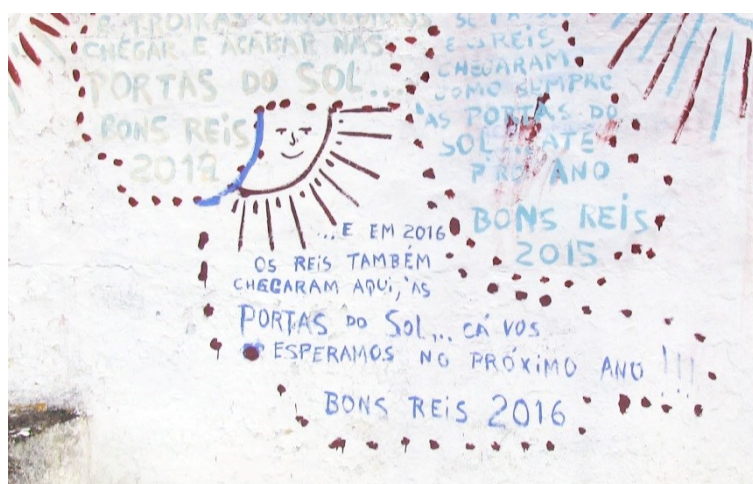 TROIKAS
CHEGAR E ACABAR NAS
PORTAS DO SOL...
BONS REIS
2012
E OS REIS
CHEGARAM
COMO SEMPRE
'AS PORTAS DO
SOL ATÉ
PRO ANO
BONS REIS
2015
...E EM 2016
OS REIS TAMBÉM
CHEGARAM AQUI, 'AS
PORTAS DO SOL... CÁ VOS
ESPERAMOS NO PRÓXIMO ANO !!!
BONS REIS 2016